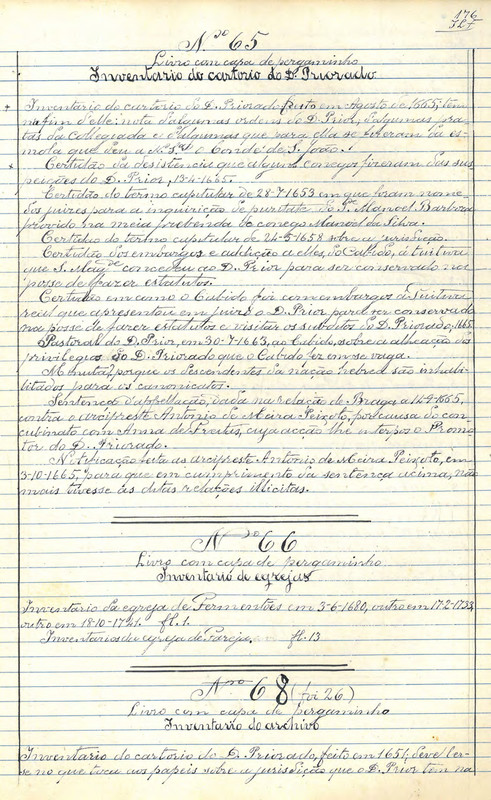 176
N.º 65
Livro com capa de pergaminho
Inventario do cartorio do D. Priorado
Inventario do cartorio do D. Priorado feito em Agosto de 1665; tem
no fim d'elle nota d'algumas ordens do D. Prior, d'algumas pra-
tas da Collegiada e d'algumas que para ella se fizeram da es-
mola que deu a N.ª Sr.ª o Conde de S. João.
Certidão da desistencia que alguns conegos fizeram das sus-
peições do D. Prior, 13-4-1665.
Certidão do termo capitular de 28-7-1653 em que foram nomea-
dos juizes para a inquirição de puritate do P.e Manoel Barbosa
provido na meia prebenda do conego Manoel da Silva.
Certidão do termo capitular de 24-5-1658 sobre a jurisdicção.
Certidão dos embargos e addição a elles, do Cabido, á tuitiva
que S. Mag.de concedeu ao D. Prior para ser conservado na
posse de fazer estatutos.
Certidão em como o Cabido foi com embargos á tuitiva
real que apresentou em juizo o D. Prior para ser conservado
na posse de fazer estatutos e visitar os subditos do D. Priorado; 1665.
Pastoral do D. Prior, em 30-7-1663, ao Cabido, sobre a allocação dos
privilegios do D. Priorado que o Cabido fez em se vaga.
Minuta, porque os descendentes da nação hebrea são inhabi-
litados para os canonicatos.
Sentença d'appellação, dada na relação de Braga a 14-4-1665,
contra o arcipreste Antonio de Meira Peixoto, por causa do con-
cubinato com Anna de Freitas, cuja acção lhe interpos o Promo-
tor do D. Priorado.
Notificação feita ao arcipreste Antonio de Meira Peixoto, em
3-10-1665, para que em cumprimento da sentença acima, não
mais tivesse as ditas relações illicitas.
N.º 66
Livro com capa de pergaminho
Inventario de egrejas
Inventario da egreja de Fermentões em 3-6-1680, outro em 17-2-1733,
outro em 18-10-1741. fl. 1.
Inventarios da egreja de fl. 13
N.º 68 (foi 26)
Livro com capa de pergaminho
Inventario do archivo
Inventario do cartorio do D. Priorado, feito em 1651; deve ler-
se no que toca aos papeis sobre a jurisdição que o D. Prior tem na